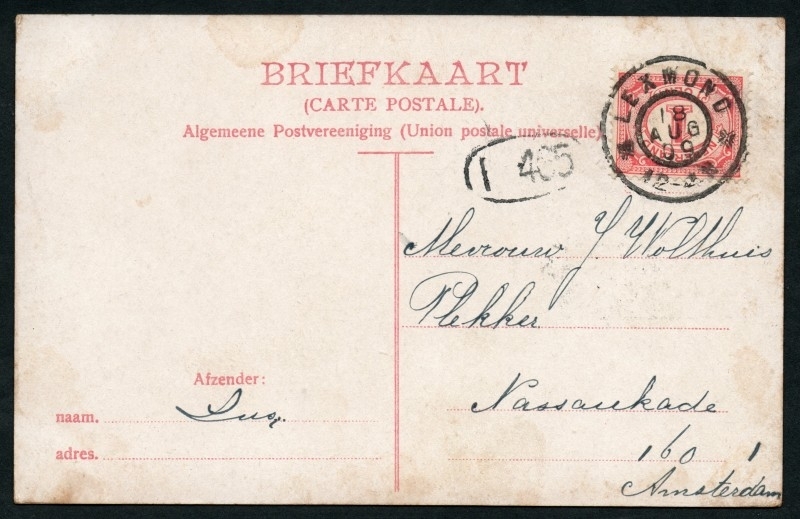 BRIEFKAART
(CARTE POSTALE).
Algemeene Postvereeniging (Union postale universelle)
LEXMOND
18
AUG
09
12-
1 465
Mevrouw J. Wolthuis
Plekker
Nassaukade
160 1
Amsterdam
Afzender:
naam. Sus.
adres.